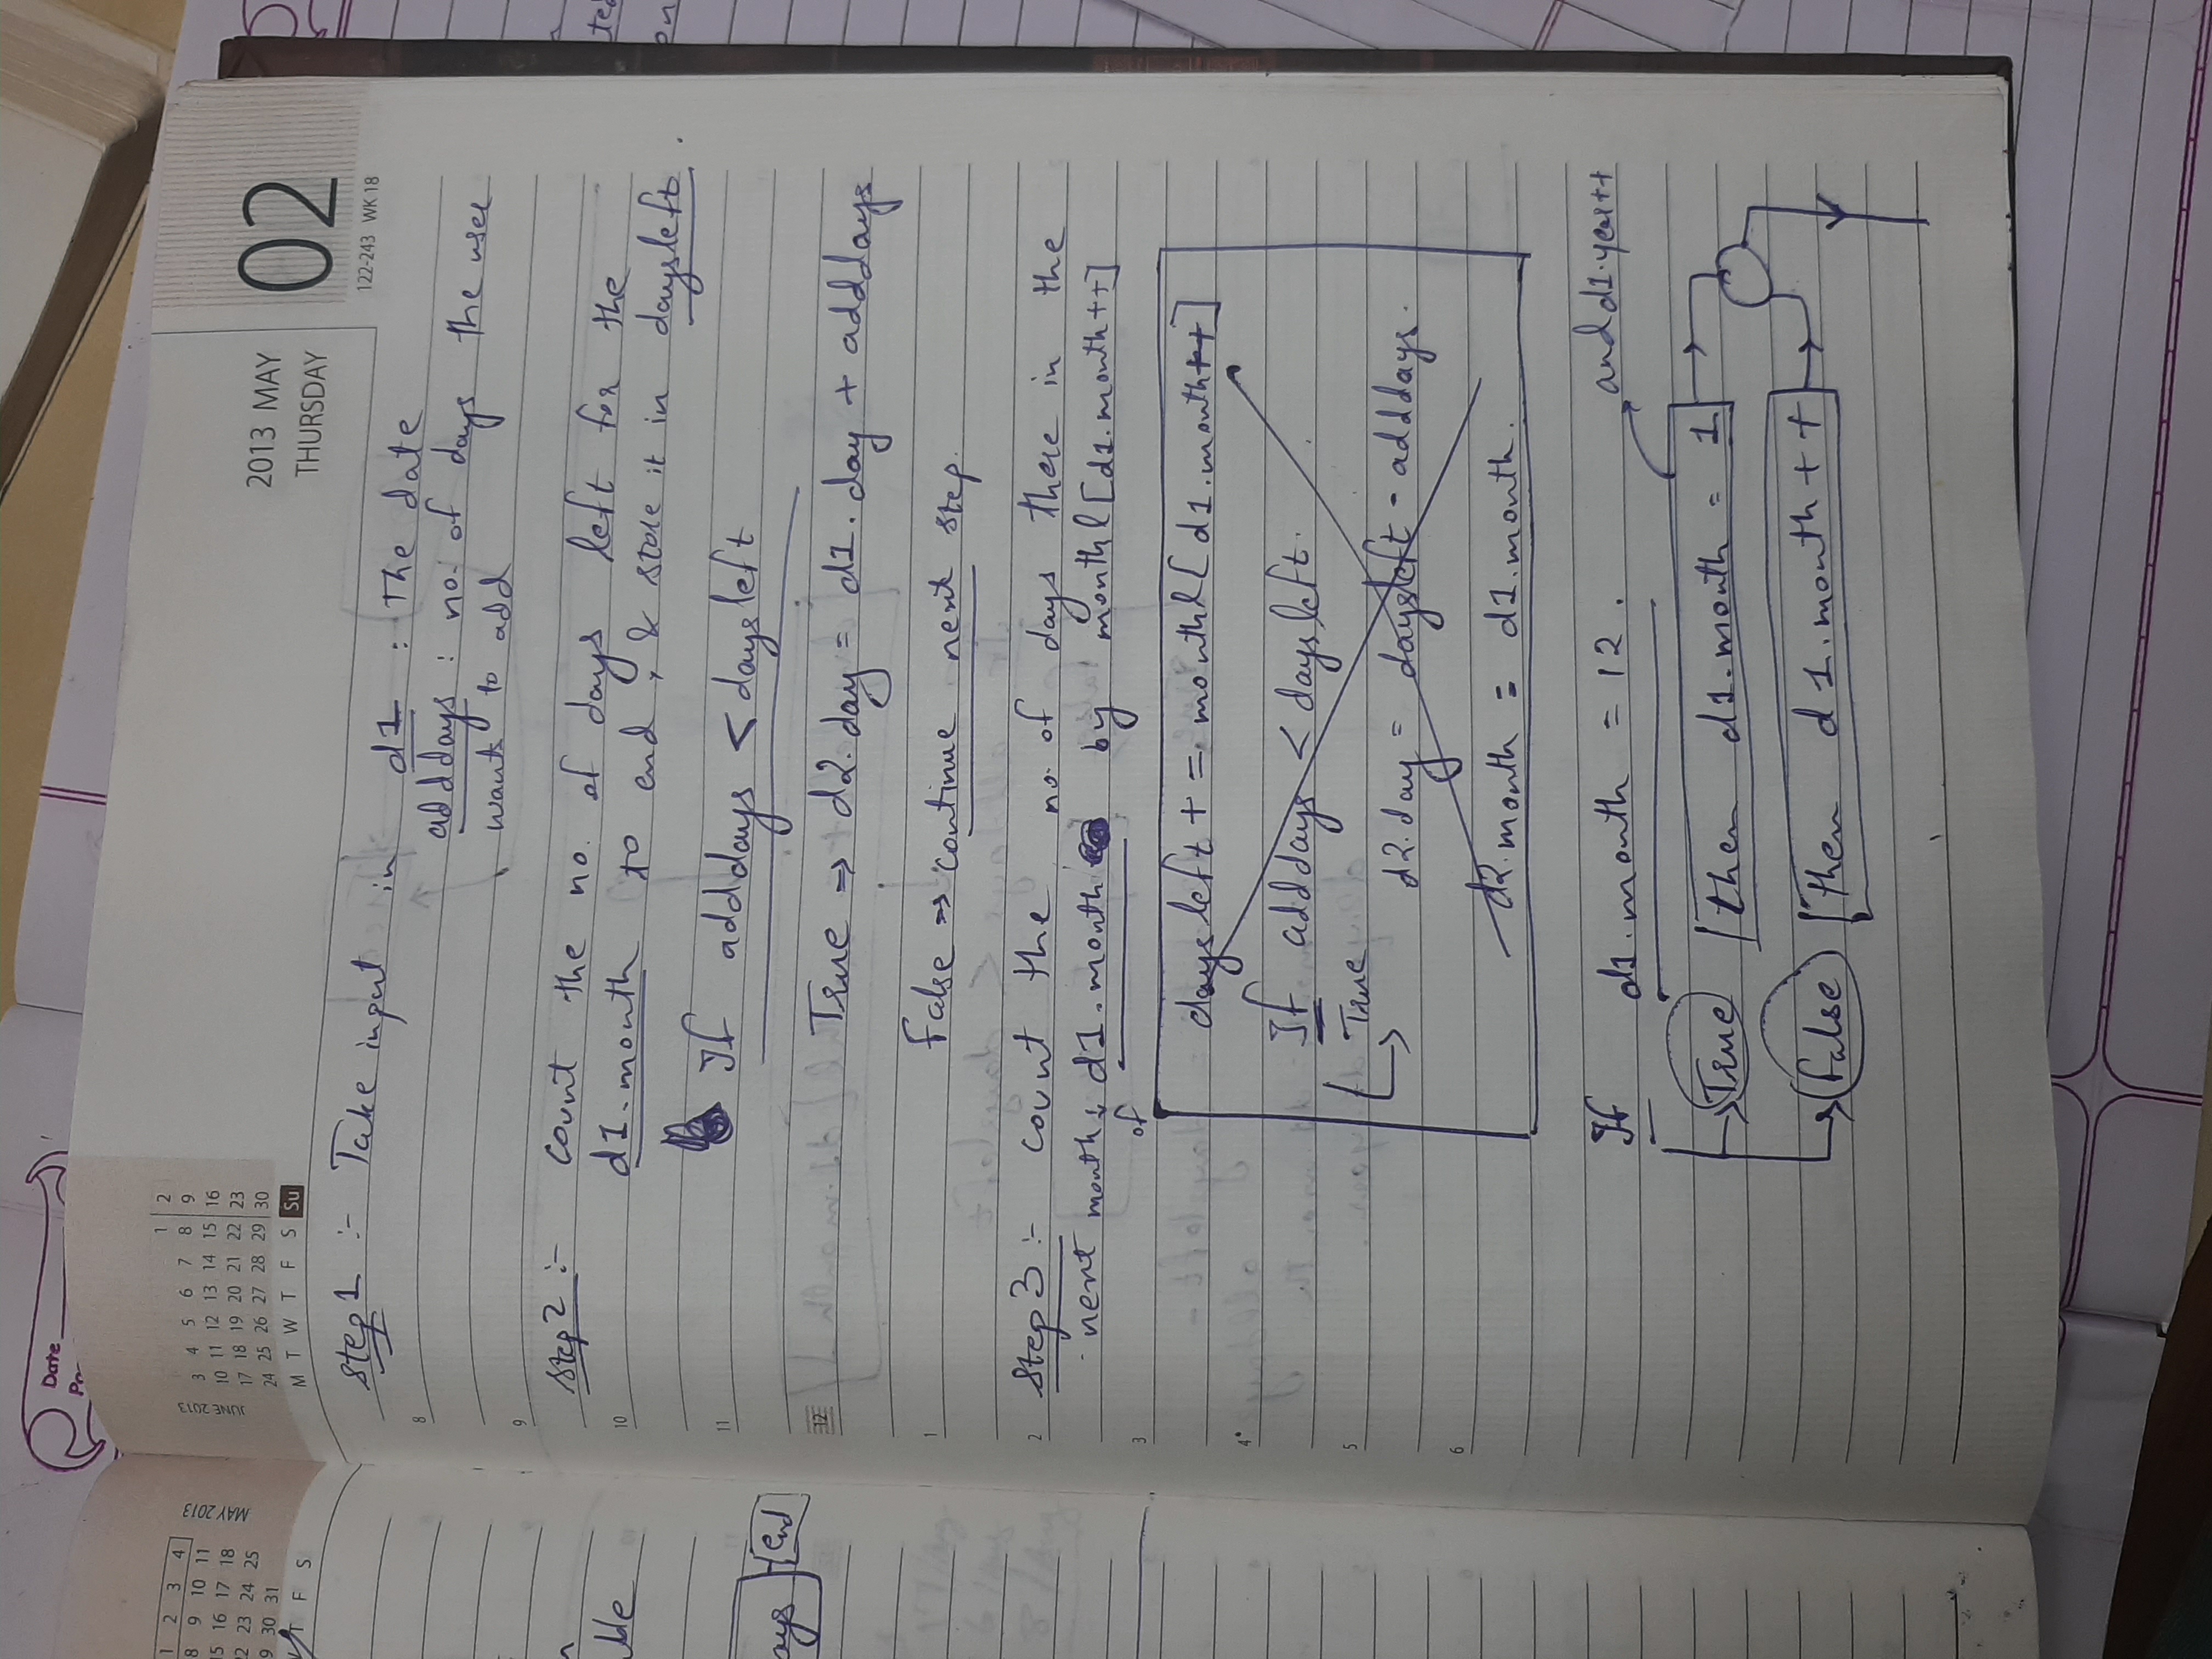 Date
1 2 3 4
8 9 10 11
15 16 17 18
22 23 24 25
29 30 31
T F S
MAY 2013
able
ays
End
JUNE 2013
1 2
3 4 5 6 7 8 9
10 11 12 13 14 15 16
17 18 19 20 21 22 23
24 25 26 27 28 29 30
M T W T F S Su
2013 MAY
THURSDAY
02
122-243 WK 18
step1 :- Take input in d1 : The date
8
adddays : no. of days the user
wants to add
9
step2 :- count the no. of days left for the
10
d1.month to end, & store it in daysleft.
11
If adddays < daysleft
12
True ⇒ d2.day = d1.day + adddays
1
false ⇒ continue next step.
2
step3 :- count the no. of days there in the
next month of d1.month by monthl[d1.month++]
3
daysleft += monthl[d1.month++]
4
If adddays < daysleft.
5
True
d2.day = daysleft - adddays.
6
d2.month = d1.month.
If d1.month = 12.
and d1.year++
True then d1.month = 1
false then d1.month++